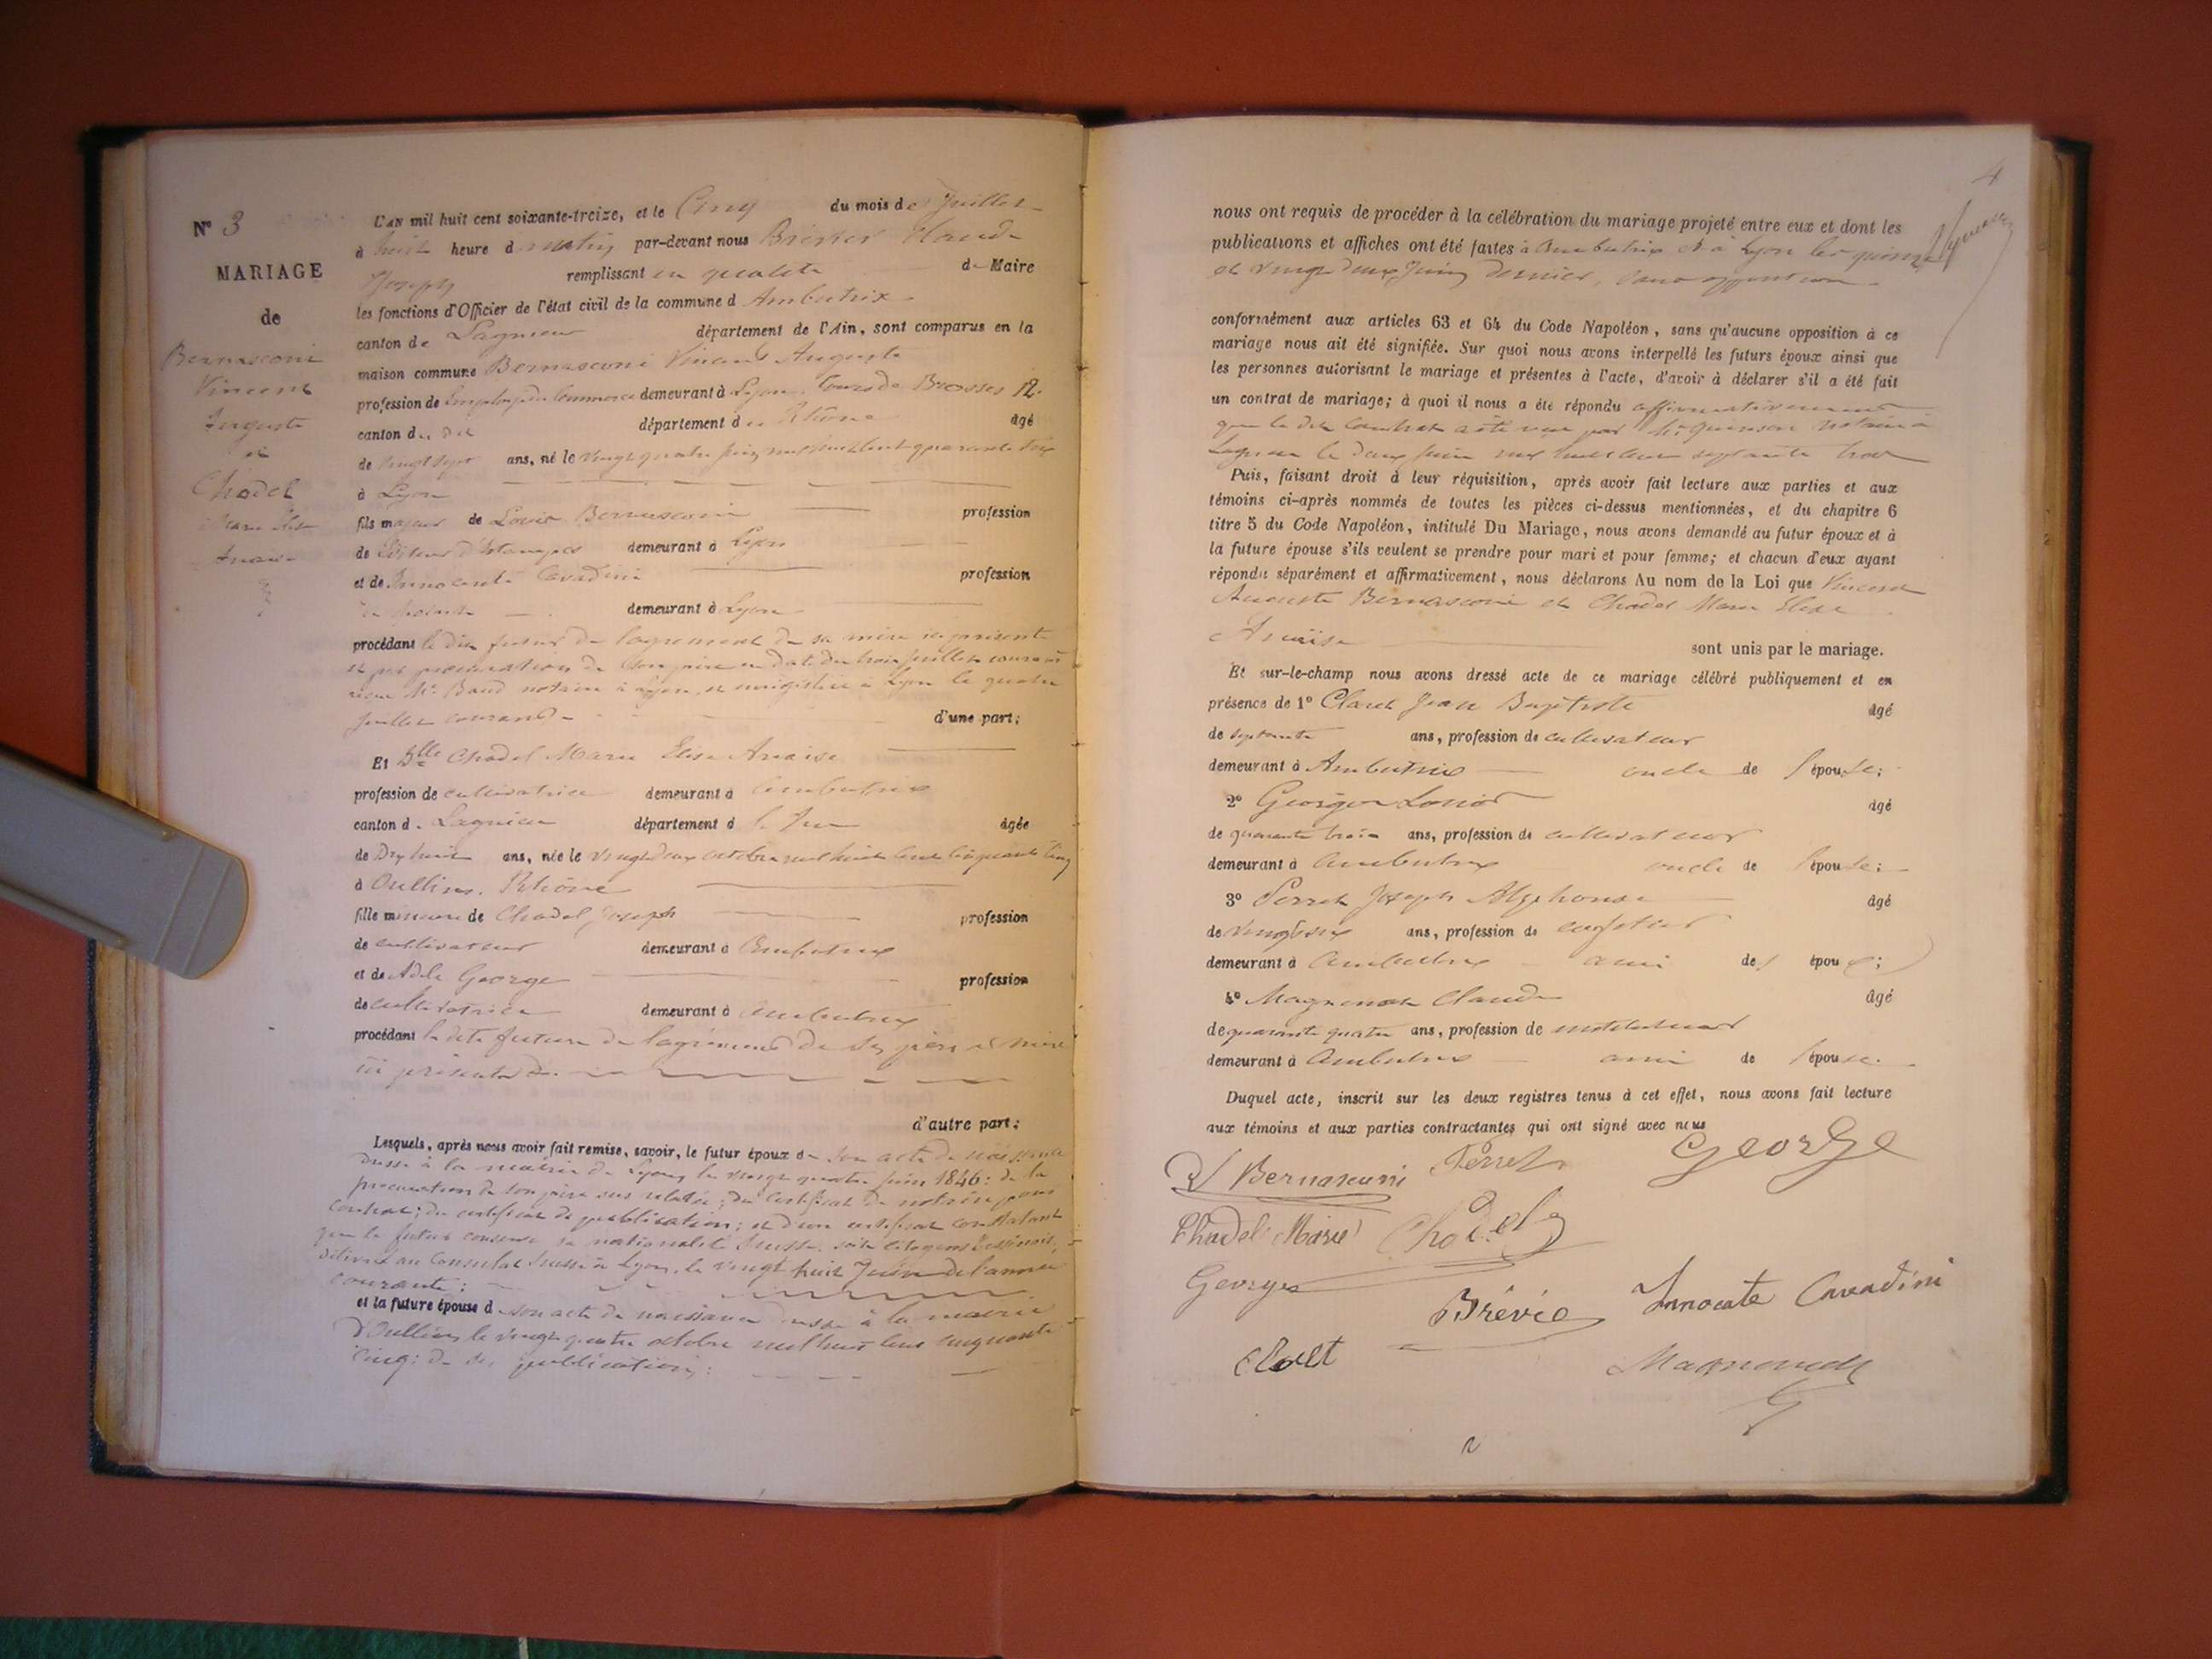 N° 3
MARIAGE
de
Bernasconi
Vincent
Auguste
et
Chadel
Marie Elise
Anaïse
L'AN mil huit cent soixante-treize, et le Cinq du mois de Juillet
à huit heure d matin par-devant nous Claude
Joseph remplissant en qualité de Maire
les fonctions d'Officier de l'état civil de la commune d Ambutrix
canton de Lagnieu département de l'Ain, sont comparus en la
maison commune Bernasconi Vincent Auguste
profession de Employé de Commerce demeurant à Lyon, Cours de Brosses 12.
canton du dit département du Rhône âgé
de vingt sept ans, né le vingt quatre juin mil huit cent quarante six
à Lyon
fils majeur de Louis Bernasconi profession
de Editeur d'Estampes demeurant à Lyon
et de Innocente Cavadini profession
demeurant à Lyon
procédant le dit futur de l'agrément de sa mère ici présente
et par procuration de son père en date du trois juillet courant
reçue Me Baud notaire à Lyon, et enregistrée à Lyon le quatre
juillet courant d'une part;
Et Dlle Chadel Marie Elise Anaise
profession de cultivatrice demeurant à Ambutrix
canton de Lagnieu département d l'Ain âgée
de Dix huit ans, née le vingt deux octobre mil huit cent cinquante cinq
à Oullins. Rhône
fille mineure de Chadel Joseph profession
de cultivateur demeurant à Ambutrix
et de Adèle George profession
de cultivatrice demeurant à Ambutrix
procédant la dite future de l'agrément de ses père et mère
ici présents
d'autre part;
Lesquels, après nous avoir fait remise, savoir, le futur époux de son acte de naissance
dressé à la mairie de Lyon le vingt quatre juin 1846: de la
procuration de son père sus relatée; du certificat de notaire pour
contrat; du certificat de publication; et d'un certificat constatant
que le futur conserve sa nationalité Suisse, soit citoyen Tessinois,
délivré au Consulat Suisse à Lyon, le vingt huit Juin de l'année
courante;
et la future épouse d son acte de naissance dressé à la mairie
d'Oullins le vingt quatre octobre mil huit cent cinquante
cinq: de ses publications:
4
nous ont requis de procéder à la célébration du mariage projeté entre eux et dont les
publications et affiches ont été faites à Ambutrix et à Lyon les quinze
et vingt deux Juin dernier, sans opposition
conformément aux articles 63 et 64 du Code Napoléon, sans qu'aucune opposition à ce
mariage nous ait été signifiée. Sur quoi nous avons interpellé les futurs époux ainsi que
les personnes autorisant le mariage et présentes à l'acte, d'avoir à déclarer s'il a été fait
un contrat de mariage; à quoi il nous a été répondu affirmativement
que le dit Contrat a été reçu par Me Quinson notaire à
Lagnieu le deux juin mil huit cent septante trois
Puis, faisant droit à leur réquisition, après avoir fait lecture aux parties et aux
témoins ci-après nommés de toutes les pièces ci-dessus mentionnées, et du chapitre 6
titre 5 du Code Napoléon, intitulé Du Mariage, nous avons demandé au futur époux et à
la future épouse s'ils veulent se prendre pour mari et pour femme; et chacun d'eux ayant
répondu séparément et affirmativement, nous déclarons Au nom de la Loi que Vincent
Auguste Bernasconi et Chadel Marie Elise
Anaïse sont unis par le mariage.
Et sur-le-champ nous avons dressé acte de ce mariage célébré publiquement et en
présence de 1° Claret Jean Baptiste âgé
de septante ans, profession de cultivateur
demeurant à Ambutrix oncle de l'épouse;
2° George Louis âgé
de quarante trois ans, profession de cultivateur
demeurant à Ambutrix oncle de l'épouse;
3° Perret Joseph Alphonse âgé
de vingt six ans, profession de
demeurant à Ambutrix ami des époux;
4° Magnenot Claude âgé
de quarante quatre ans, profession de instituteur
demeurant à Ambutrix ami de l'épouse.
Duquel acte, inscrit sur les deux registres tenus à cet effet, nous avons fait lecture
aux témoins et aux parties contractantes qui ont signé avec nous
George
Bernasconi Perret
Chadel Marie Chadel
George
Innocente Cavadini